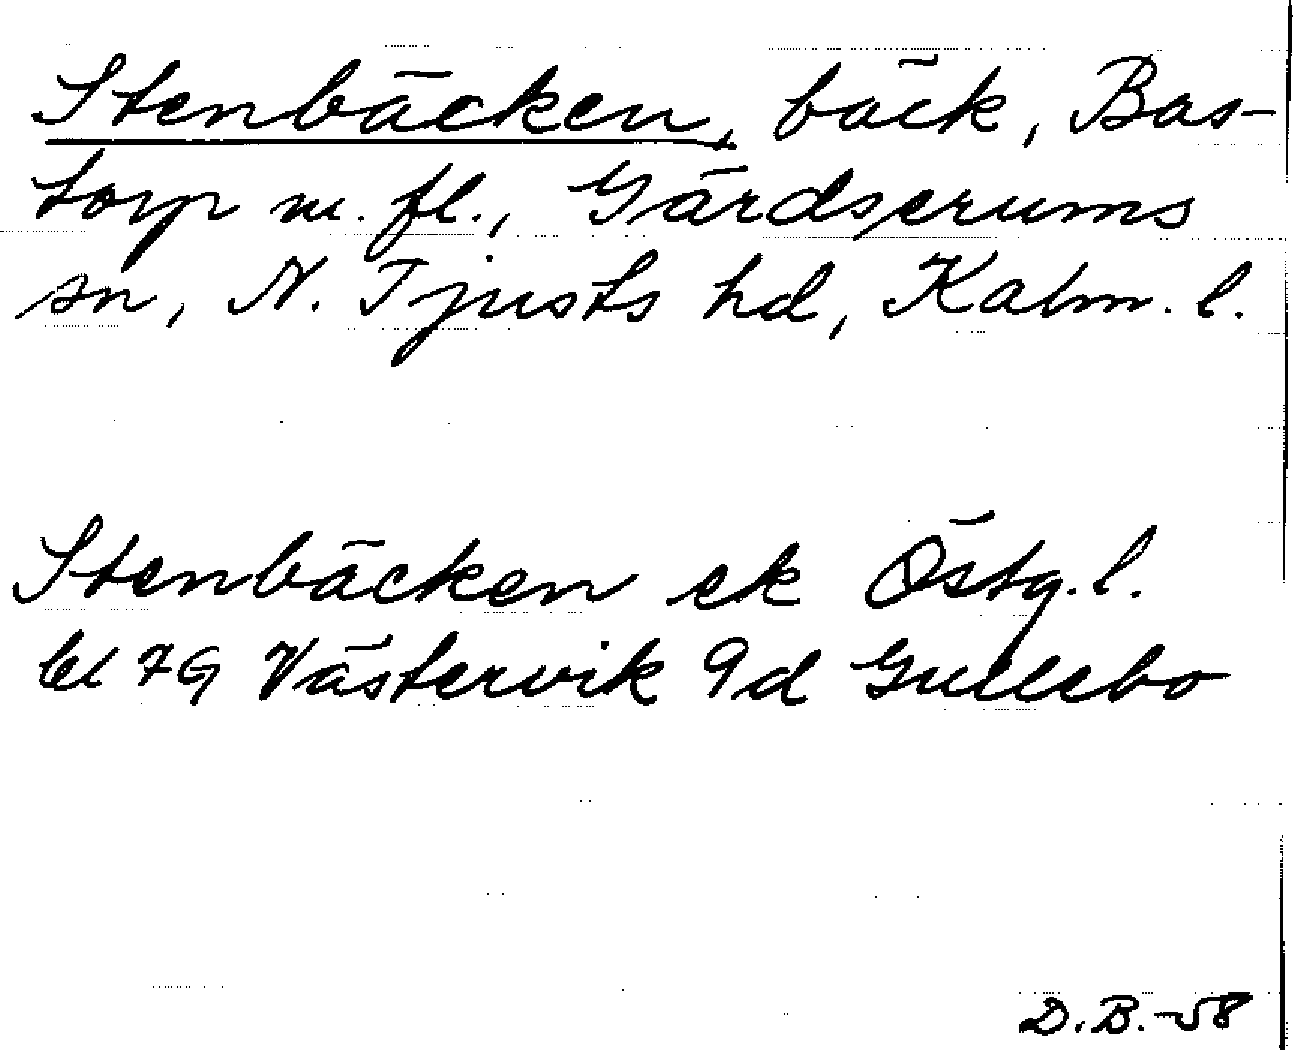 Stenbäcken, bäck, Bas-
torp m. fl., Gärdserums
sn, N. Tjusts hd, Kalm. l.
Stenbäcken ek Östg. l.
bl 7G Västervik 9d Gullebo
D.B.-58